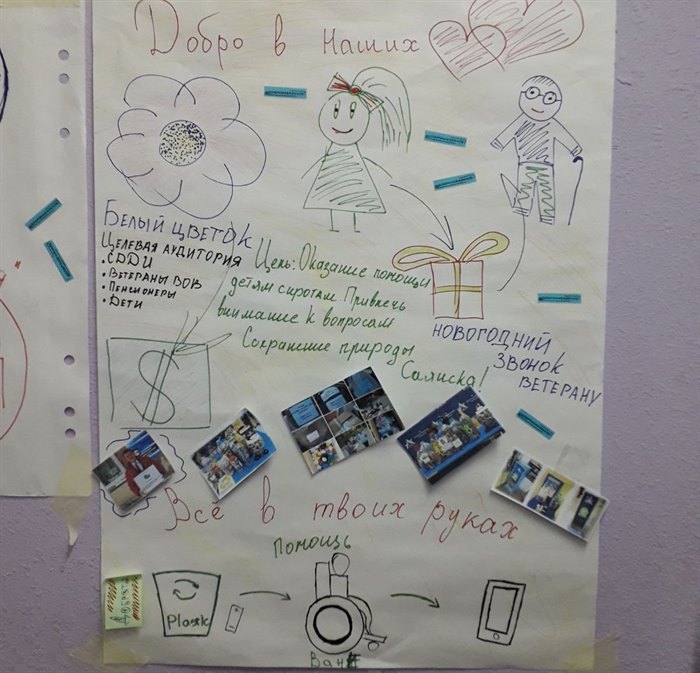 Добро в наших
БЕЛЫЙ ЦВЕТОК
ЦЕЛЕВАЯ АУДИТОРИЯ
• ВЕТЕРАНЫ ВОВ
• ПЕНСИОНЕРЫ
• ДЕТИ
Цель: Оказание помощи
детям сиротам Привлечь
внимание к вопросам
Сохранение природы
НОВОГОДНИЙ
ЗВОНОК
ВЕТЕРАНУ
$
Всё в твоих руках
ПОМОЩЬ
Plastic